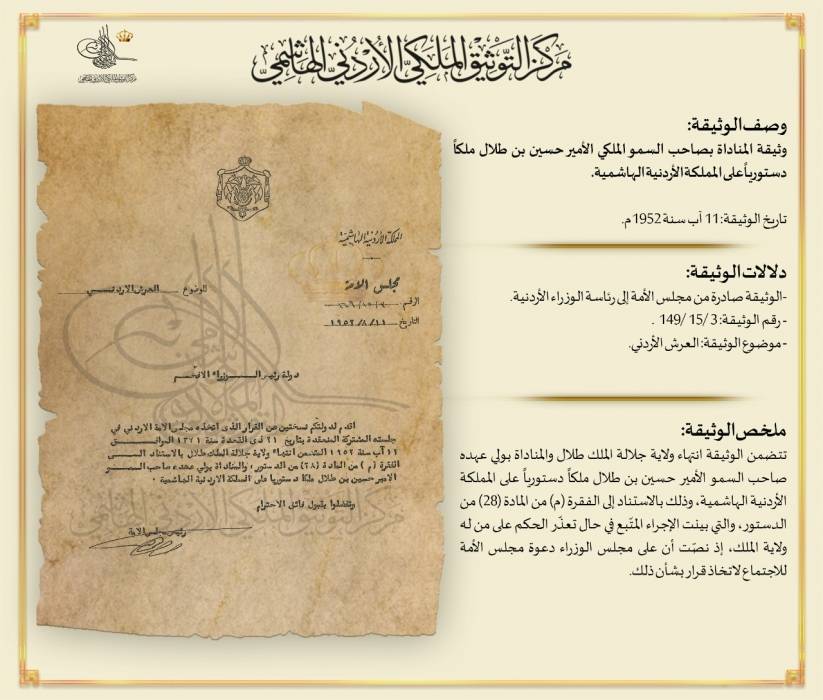 مركز التوثيق الملكي الأردني الهاشمي
وصف الوثيقة:
وثيقة المناداة بصاحب السمو الملكي الأمير حسين بن طلال ملكاً
دستورياً على المملكة الأردنية الهاشمية.
تاريخ الوثيقة: 11 آب سنة 1952م.
دلالات الوثيقة:
-الوثيقة صادرة من مجلس الأمة إلى رئاسة الوزراء الأردنية.
- رقم الوثيقة: 3/ 15/ 149 .
- موضوع الوثيقة: العرش الأردني.
ملخص الوثيقة:
تتضمن الوثيقة انتهاء ولاية جلالة الملك طلال والمناداة بولي عهده
صاحب السمو الأمير حسين بن طلال ملكاً دستورياً على المملكة
الأردنية الهاشمية، وذلك بالاستناد إلى الفقرة (م) من المادة (28) من
الدستور، والتي بينت الإجراء المتّبع في حال تعذّر الحكم على من له
ولاية الملك، إذ نصّت أن على مجلس الوزراء دعوة مجلس الأمة
للاجتماع لاتخاذ قرار بشأن ذلك.
المملكة الأردنية الهاشمية
مجلس الامة
الموضوع العرش الاردنــــي
الرقم
التاريخ ١٩٥٢/٨/١١
دولة رئيس الـــوزراء الافخــم
اقدم لدولتكم نسختين من القرار الذى اتخذه مجلس الامة الاردني في
جلسته المشتركة المنعقدة بتاريخ ٢١ ذى القعدة سنة ١٣٧١ الموافــق
١١ آب سنة ١٩٥٢ المتضمن انتهاء ولاية جلالة الملك طلال بالاستناد الــى
الفقرة (م) من المادة (٢٨) من الدستور، والمناداة بولي عهده صاحب السمو
الامير حسين بن طلال ملكا دستوريا على المملكة الاردنية الهاشمية .
وتفضلوا بقبول فائق الاحترام
رئيس مجلس الامة
مركز التوثيق الملكي الأردني الهاشمي